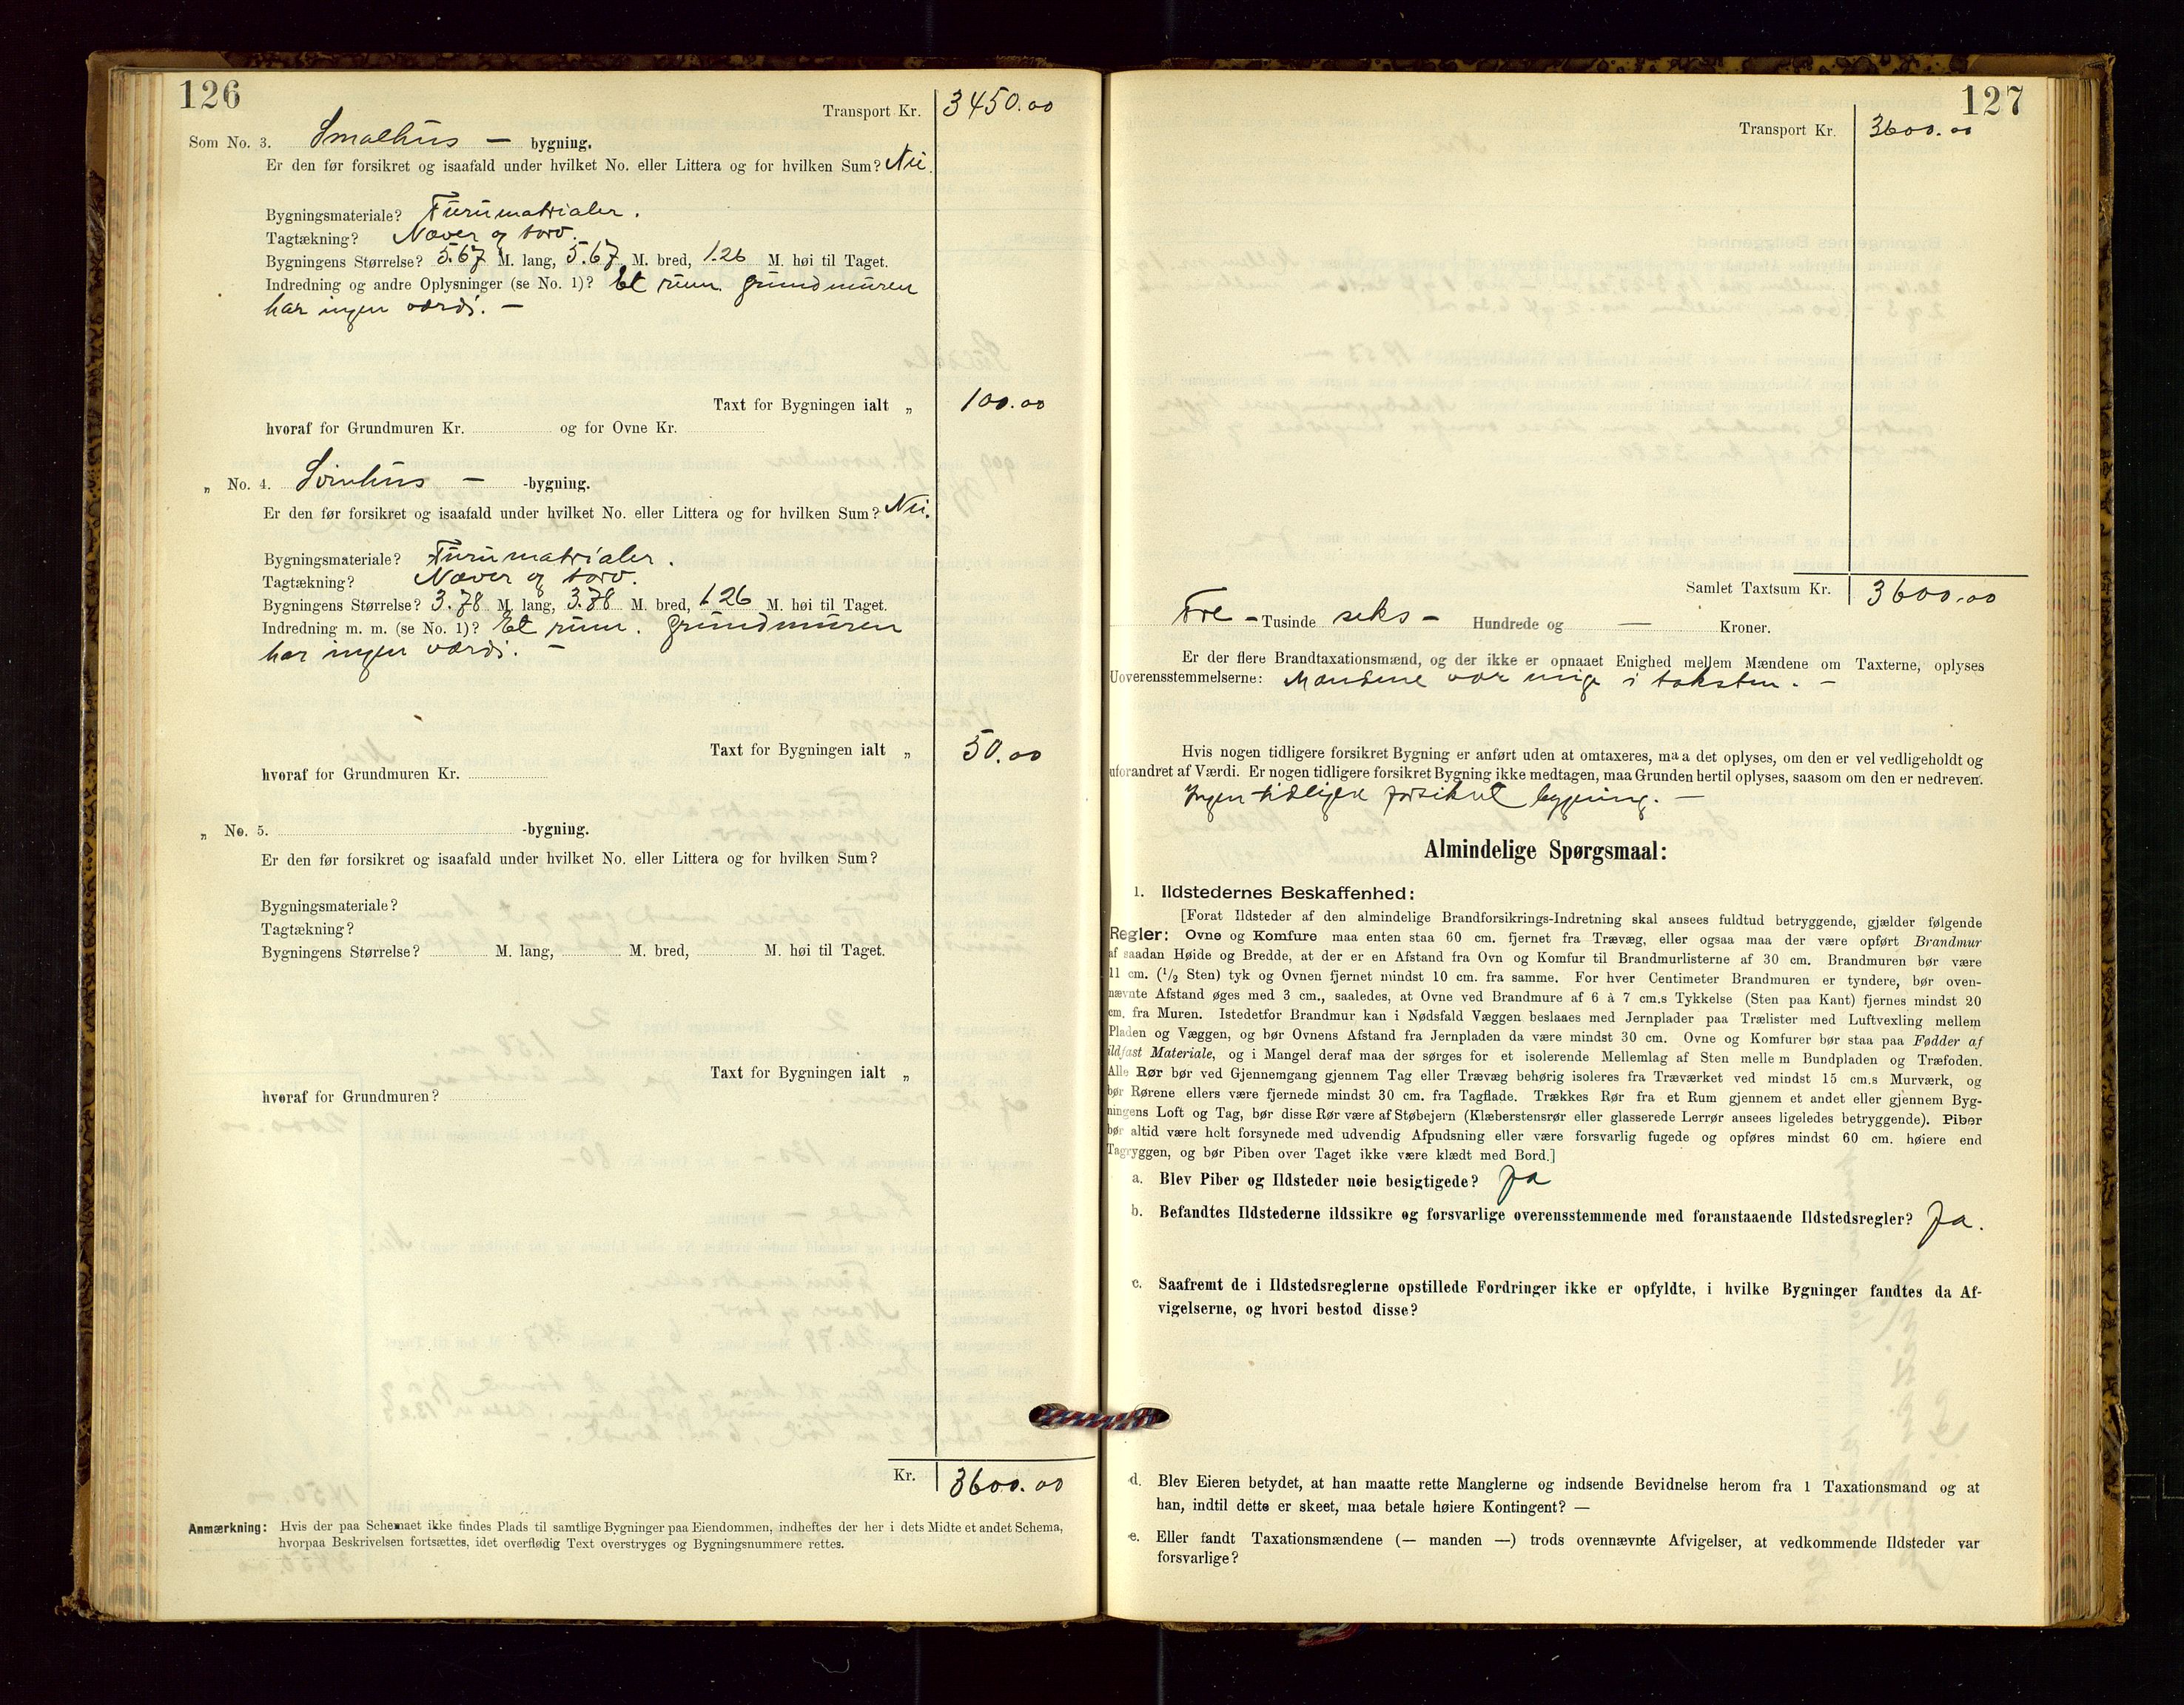 126
Transport Kr. 3450.00
Som No. 3. Smalhus — bygning.
Er den før forsikret og isaafald under hvilket No. eller Littera og for hvilken Sum? Nei.
Bygningsmateriale? Furumatrialer.
Tagtækning? Næver og torv.
Bygningens Størrelse? 5.67 M. lang, 5.67 M. bred, 1.26 M. høi til Taget.
Indredning og andre Oplysninger (se No. 1)? Et rum. Grundmuren
har ingen værdi. —
Taxt for Bygningen ialt „ 100.00
hvoraf for Grundmuren Kr. og for Ovne Kr.
„ No. 4. Svinhus — -bygning.
Er den før forsikret og isaafald under hvilket No. eller Littera og for hvilken Sum? Nei.
Bygningsmateriale? Furumatrialer.
Tagtækning? Næver og torv.
Bygningens Størrelse? 3.78 M. lang, 3.78 M. bred, 1.26 M. høi til Taget.
Indredning m. m. (se No. 1)? Et rum. Grundmuren
har ingen værdi. —
Taxt for Bygningen ialt „ 50.00
hvoraf for Grundmuren Kr.
„ No. 5. -bygning.
Er den før forsikret og isaafald under hvilket No. eller Littera og for hvilken Sum?
Bygningsmateriale?
Tagtækning?
Bygningens Størrelse? M. lang, M. bred, M. høi til Taget.
Taxt for Bygningen ialt „
hvoraf for Grundmuren?
Kr. 3600.00
Anmærkning: Hvis der paa Schemaet ikke findes Plads til samtlige Bygninger paa Eiendommen, indheftes der her i dets Midte et andet Schema,
hvorpaa Beskrivelsen fortsættes, idet overflødig Text overstryges og Bygningsnummere rettes.
127
Transport Kr. 3600.00
Samlet Taxtsum Kr. 3600.00
Tre - Tusinde seks - Hundrede og — Kroner.
Er der flere Brandtaxationsmænd, og der ikke er opnaaet Enighed mellem Mændene om Taxterne, oplyses
Uoverensstemmelserne: Mændene var enige i taksten. —
Hvis nogen tidligere forsikret Bygning er anført uden at omtaxeres, maa det oplyses, om den er vel vedligeholdt og
uforandret af Værdi. Er nogen tidligere forsikret Bygning ikke medtagen, maa Grunden hertil oplyses, saasom om den er nedreven.
Ingen tidligere forsikret bygning. —
Almindelige Spørgsmaal:
1. Ildstedernes Beskaffenhed:
[Forat Ildsteder af den almindelige Brandforsikrings-Indretning skal ansees fuldtud betryggende, gjælder følgende
Regler: Ovne og Komfure maa enten staa 60 cm. fjernet fra Trævæg, eller ogsaa maa der være opført Brandmur
af saadan Høide og Bredde, at der er en Afstand fra Ovn og Komfur til Brandmurlisterne af 30 cm. Brandmuren bør være
11 cm. (1/2 Sten) tyk og Ovnen fjernet mindst 10 cm. fra samme. For hver Centimeter Brandmuren er tyndere, bør oven-
nævnte Afstand øges med 3 cm., saaledes, at Ovne ved Brandmure af 6 à 7 cm.s Tykkelse (Sten paa Kant) fjernes mindst 20
cm. fra Muren. Istedetfor Brandmur kan i Nødsfald Væggen beslaaes med Jernplader paa Trælister med Luftvexling mellem
Pladen og Væggen, og bør Ovnens Afstand fra Jernpladen da være mindst 30 cm. Ovne og Komfurer bør staa paa Fødder af
ildfast Materiale, og i Mangel deraf maa der sørges for et isolerende Mellemlag af Sten mellem Bundpladen og Træfoden.
Alle Rør bør ved Gjennemgang gjennem Tag eller Trævæg behørig isoleres fra Træværket ved mindst 15 cm.s Murværk, og
bør Rørene ellers være fjernede mindst 30 cm. fra Tagflade. Trækkes Rør fra et Rum gjennem et andet eller gjennem Byg-
ningens Loft og Tag, bør disse Rør være af Støbejern (Klæberstensrør eller glasserede Lerrør ansees ligeledes betryggende). Piber
bør altid være helt forsynede med udvendig Afpudsning eller være forsvarlig fugede og opføres mindst 60 cm. høiere end
Tagryggen, og bør Piben over Taget ikke være klædt med Bord.]
a. Blev Piber og Ildsteder nøie besigtigede? Ja
b. Befandtes Ildstederne ildssikre og forsvarlige overensstemmende med foranstaaende Ildstedsregler? Ja.
c. Saafremt de i Ildstedsreglerne opstillede Fordringer ikke er opfyldte, i hvilke Bygninger fandtes da Af-
vigelserne, og hvori bestod disse?
d. Blev Eieren betydet, at han maatte rette Manglerne og indsende Bevidnelse herom fra 1 Taxationsmand og at
han, indtil dette er skeet, maa betale høiere Kontingent? —
e. Eller fandt Taxationsmændene (— manden —) trods ovennævnte Afvigelser, at vedkommende Ildsteder var
forsvarlige?